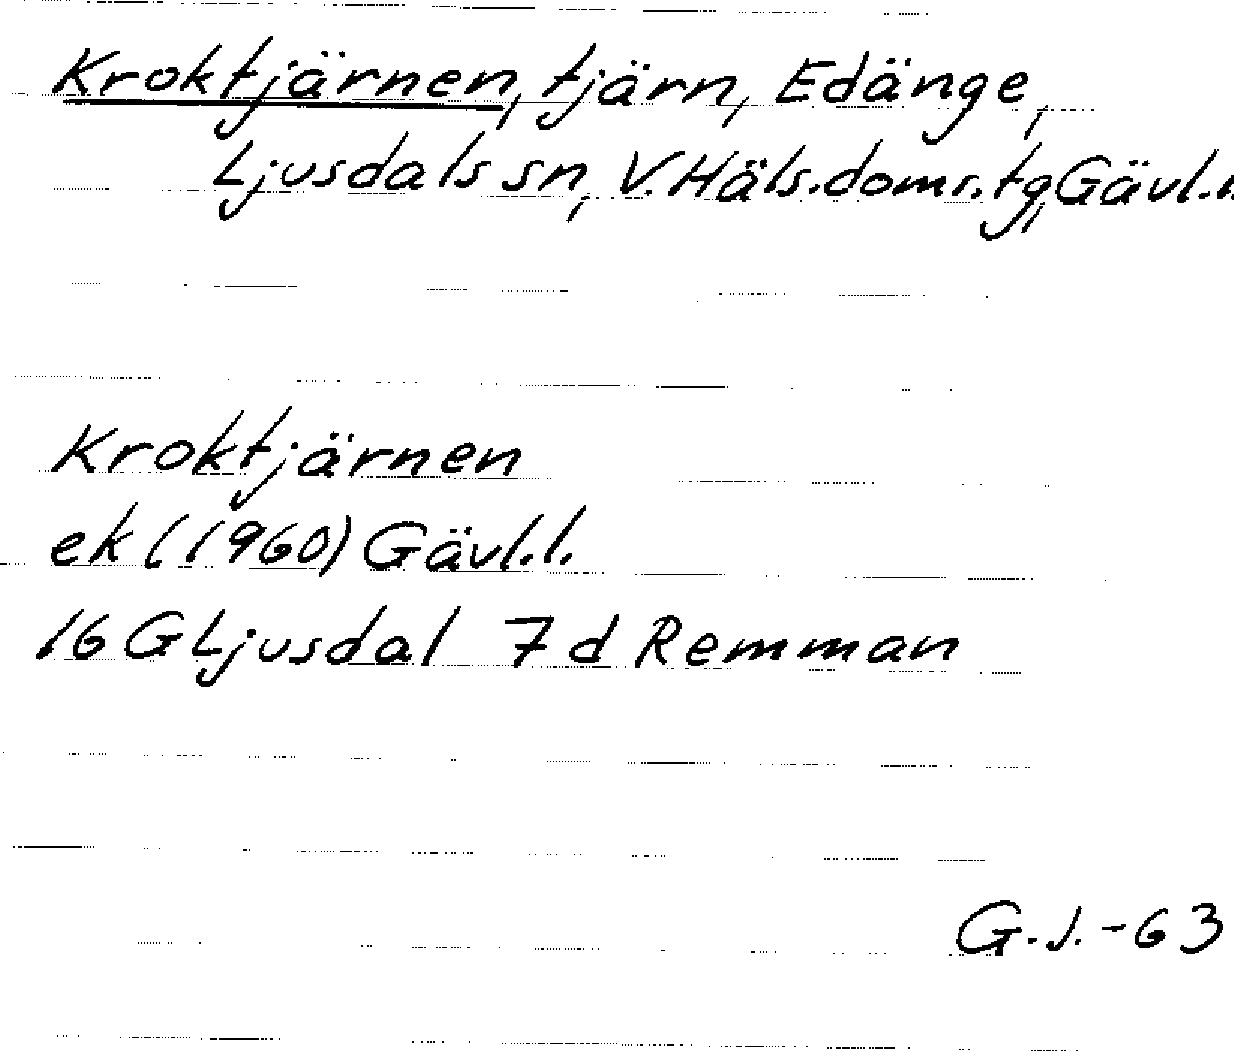 Kroktjärnen, tjärn, Edänge,
Ljusdals sn, V. Häls. domr. tg, Gävl. l.
Kroktjärnen
ek (1960) Gävl. l.
16 G Ljusdal 7 d Remman
G. J. -63